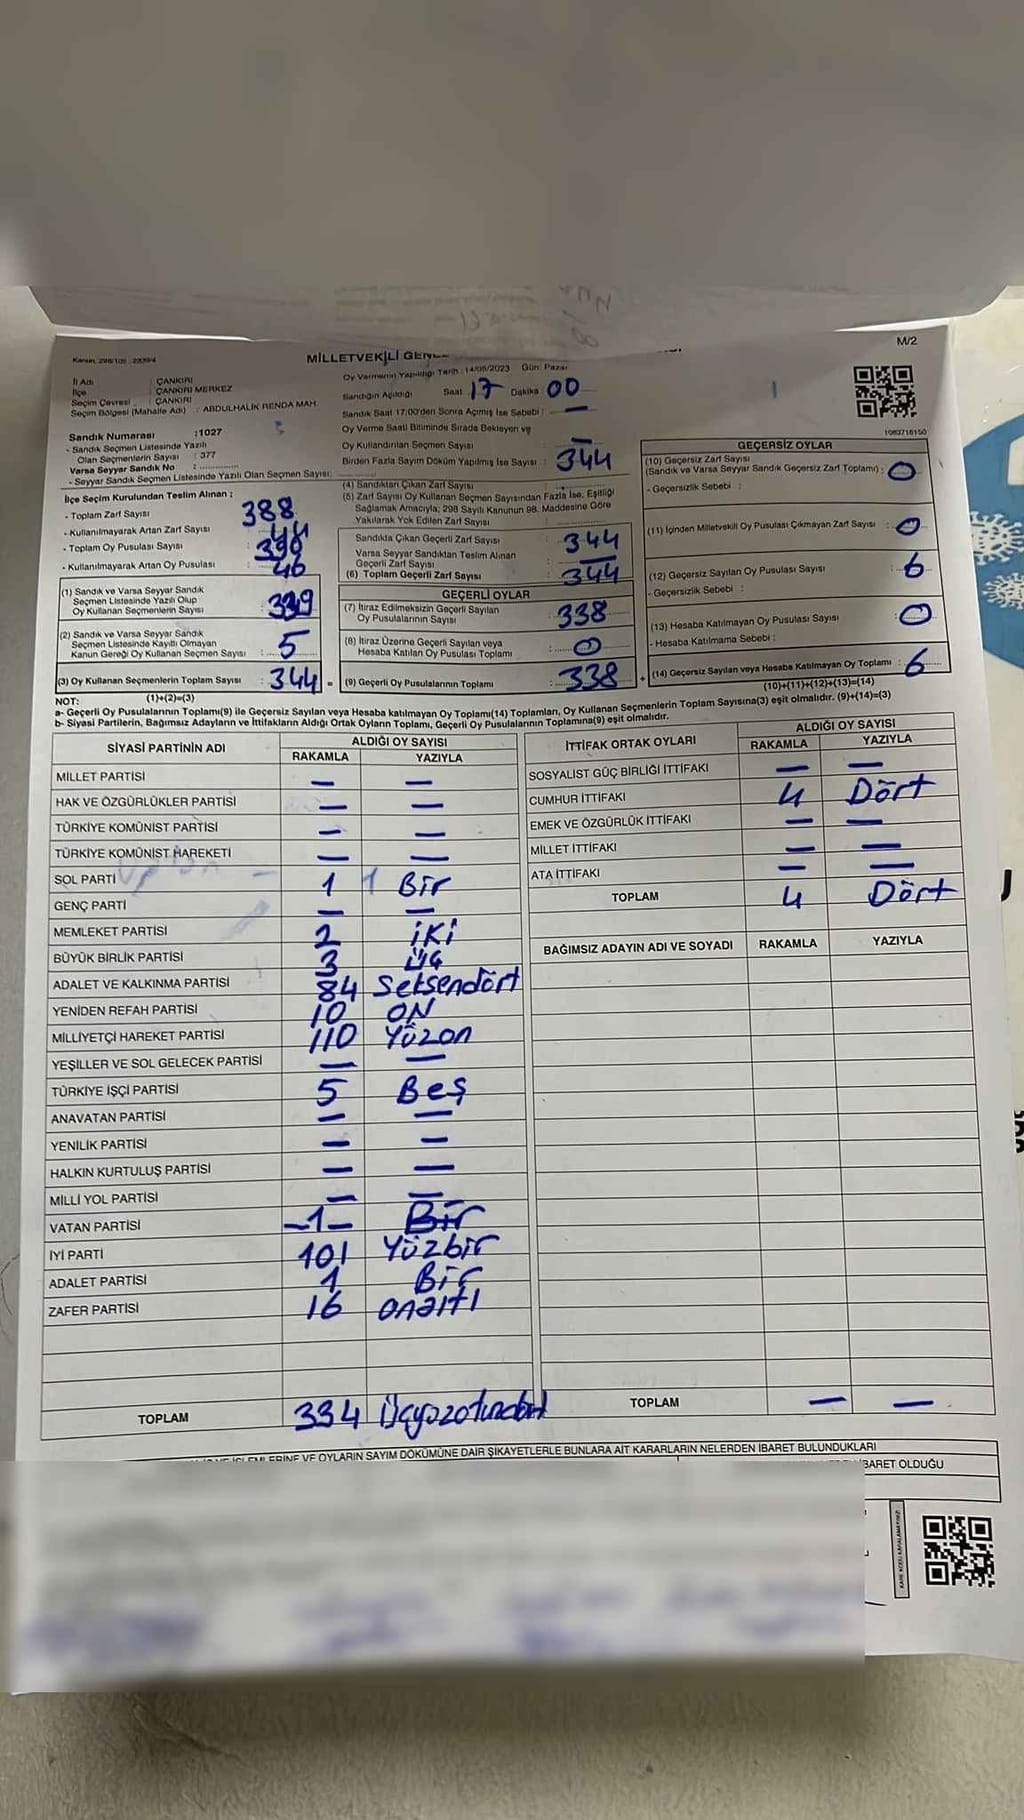 M/2
MİLLETVEKİLİ
İl Adı : ÇANKIRI
İlçe : ÇANKIRI MERKEZ
Seçim Çevresi : ÇANKIRI
Seçim Bölgesi (Mahalle Adı) : ABDULHALİK RENDA MAH.
Sandık Numarası : 1027
- Sandık Seçmen Listesinde Yazılı
Olan Seçmenlerin Sayısı : 377
Varsa Seyyar Sandık No :
- Seyyar Sandık Seçmen Listesinde Yazılı Olan Seçmen Sayısı:
Oy Vermenin Yapıldığı Tarih : 14/05/2023 Gün: Pazar
Sandığın Açıldığı Saat 17 Dakika 00
Sandık Saat 17:00'den Sonra Açımış İse Sebebi : —
Oy Verme Saati Bitiminde Sırada Bekleyen ve
Oy Kullandırılan Seçmen Sayısı : —
Birden Fazla Sayım Döküm Yapılmış İse Sayısı : 344
1083716150
İlçe Seçim Kurulundan Teslim Alınan :
- Toplam Zarf Sayısı 388
- Kullanılmayarak Artan Zarf Sayısı
- Toplam Oy Pusulası Sayısı
- Kullanılmayarak Artan Oy Pusulası : 46
(1) Sandık ve Varsa Seyyar Sandık
Seçmen Listesinde Yazılı Olup
Oy Kullanan Seçmenlerin Sayısı : 339
(2) Sandık ve Varsa Seyyar Sandık
Seçmen Listesinde Kayıtlı Olmayan
Kanun Gereği Oy Kullanan Seçmen Sayısı : 5
(3) Oy Kullanan Seçmenlerin Toplam Sayısı : 344
(4) Sandıktan Çıkan Zarf Sayısı :
(5) Zarf Sayısı Oy Kullanan Seçmen Sayısından Fazla İse, Eşitliği
Sağlamak Amacıyla; 298 Sayılı Kanunun 98. Maddesine Göre
Yakılarak Yok Edilen Zarf Sayısı :
Sandıkta Çıkan Geçerli Zarf Sayısı : 344
Varsa Seyyar Sandıktan Teslim Alınan
Geçerli Zarf Sayısı : —
(6) Toplam Geçerli Zarf Sayısı : 344
GEÇERLİ OYLAR
(7) İtiraz Edilmeksizin Geçerli Sayılan
Oy Pusulalarının Sayısı : 338
(8) İtiraz Üzerine Geçerli Sayılan veya
Hesaba Katılan Oy Pusulası Toplamı : 0
= (9) Geçerli Oy Pusulalarının Toplamı : 338
GEÇERSİZ OYLAR
(10) Geçersiz Zarf Sayısı
(Sandık ve Varsa Seyyar Sandık Geçersiz Zarf Toplamı) : 0
- Geçersizlik Sebebi :
(11) İçinden Milletvekili Oy Pusulası Çıkmayan Zarf Sayısı : 0
(12) Geçersiz Sayılan Oy Pusulası Sayısı : 6
- Geçersizlik Sebebi :
(13) Hesaba Katılmayan Oy Pusulası Sayısı : 0
- Hesaba Katılmama Sebebi :
+ (14) Geçersiz Sayılan veya Hesaba Katılmayan Oy Toplamı : 6
NOT: (1)+(2)=(3) (10)+(11)+(12)+(13)=(14)
a- Geçerli Oy Pusulalarının Toplamı(9) ile Geçersiz Sayılan veya Hesaba katılmayan Oy Toplamı(14) Toplamları, Oy Kullanan Seçmenlerin Toplam Sayısına(3) eşit olmalıdır. (9)+(14)=(3)
b- Siyasi Partilerin, Bağımsız Adayların ve İttifakların Aldığı Ortak Oyların Toplamı, Geçerli Oy Pusulalarının Toplamına(9) eşit olmalıdır.
SİYASİ PARTİNİN ADI ALDIĞI OY SAYISI
RAKAMLA YAZIYLA
MİLLET PARTİSİ — —
HAK VE ÖZGÜRLÜKLER PARTİSİ — —
TÜRKİYE KOMÜNİST PARTİSİ — —
TÜRKİYE KOMÜNİST HAREKETİ — —
SOL PARTİ 1 1 Bir
GENÇ PARTİ — —
MEMLEKET PARTİSİ 2 iKi
BÜYÜK BİRLİK PARTİSİ 3 üç
ADALET VE KALKINMA PARTİSİ 84 Seksendört
YENİDEN REFAH PARTİSİ 10 ON
MİLLİYETÇİ HAREKET PARTİSİ 110 Yüzon
YEŞİLLER VE SOL GELECEK PARTİSİ — —
TÜRKİYE İŞÇİ PARTİSİ 5 Beş
ANAVATAN PARTİSİ — —
YENİLİK PARTİSİ — —
HALKIN KURTULUŞ PARTİSİ — —
MİLLİ YOL PARTİSİ — —
VATAN PARTİSİ —1— Bir
İYİ PARTİ 101 Yüzbir
ADALET PARTİSİ 1 Bir
ZAFER PARTİSİ 16 onaltı
TOPLAM 334
İTTİFAK ORTAK OYLARI ALDIĞI OY SAYISI
RAKAMLA YAZIYLA
SOSYALİST GÜÇ BİRLİĞİ İTTİFAKI — —
CUMHUR İTTİFAKI 4 Dört
EMEK VE ÖZGÜRLÜK İTTİFAKI — —
MİLLET İTTİFAKI — —
ATA İTTİFAKI — —
TOPLAM 4 Dört
BAĞIMSIZ ADAYIN ADI VE SOYADI RAKAMLA YAZIYLA
TOPLAM — —
VE OYLARIN SAYIM DÖKÜMÜNE DAİR ŞİKAYETLERLE BUNLARA AİT KARARLARIN NELERDEN İBARET BULUNDUKLARI
İBARET OLDUĞU